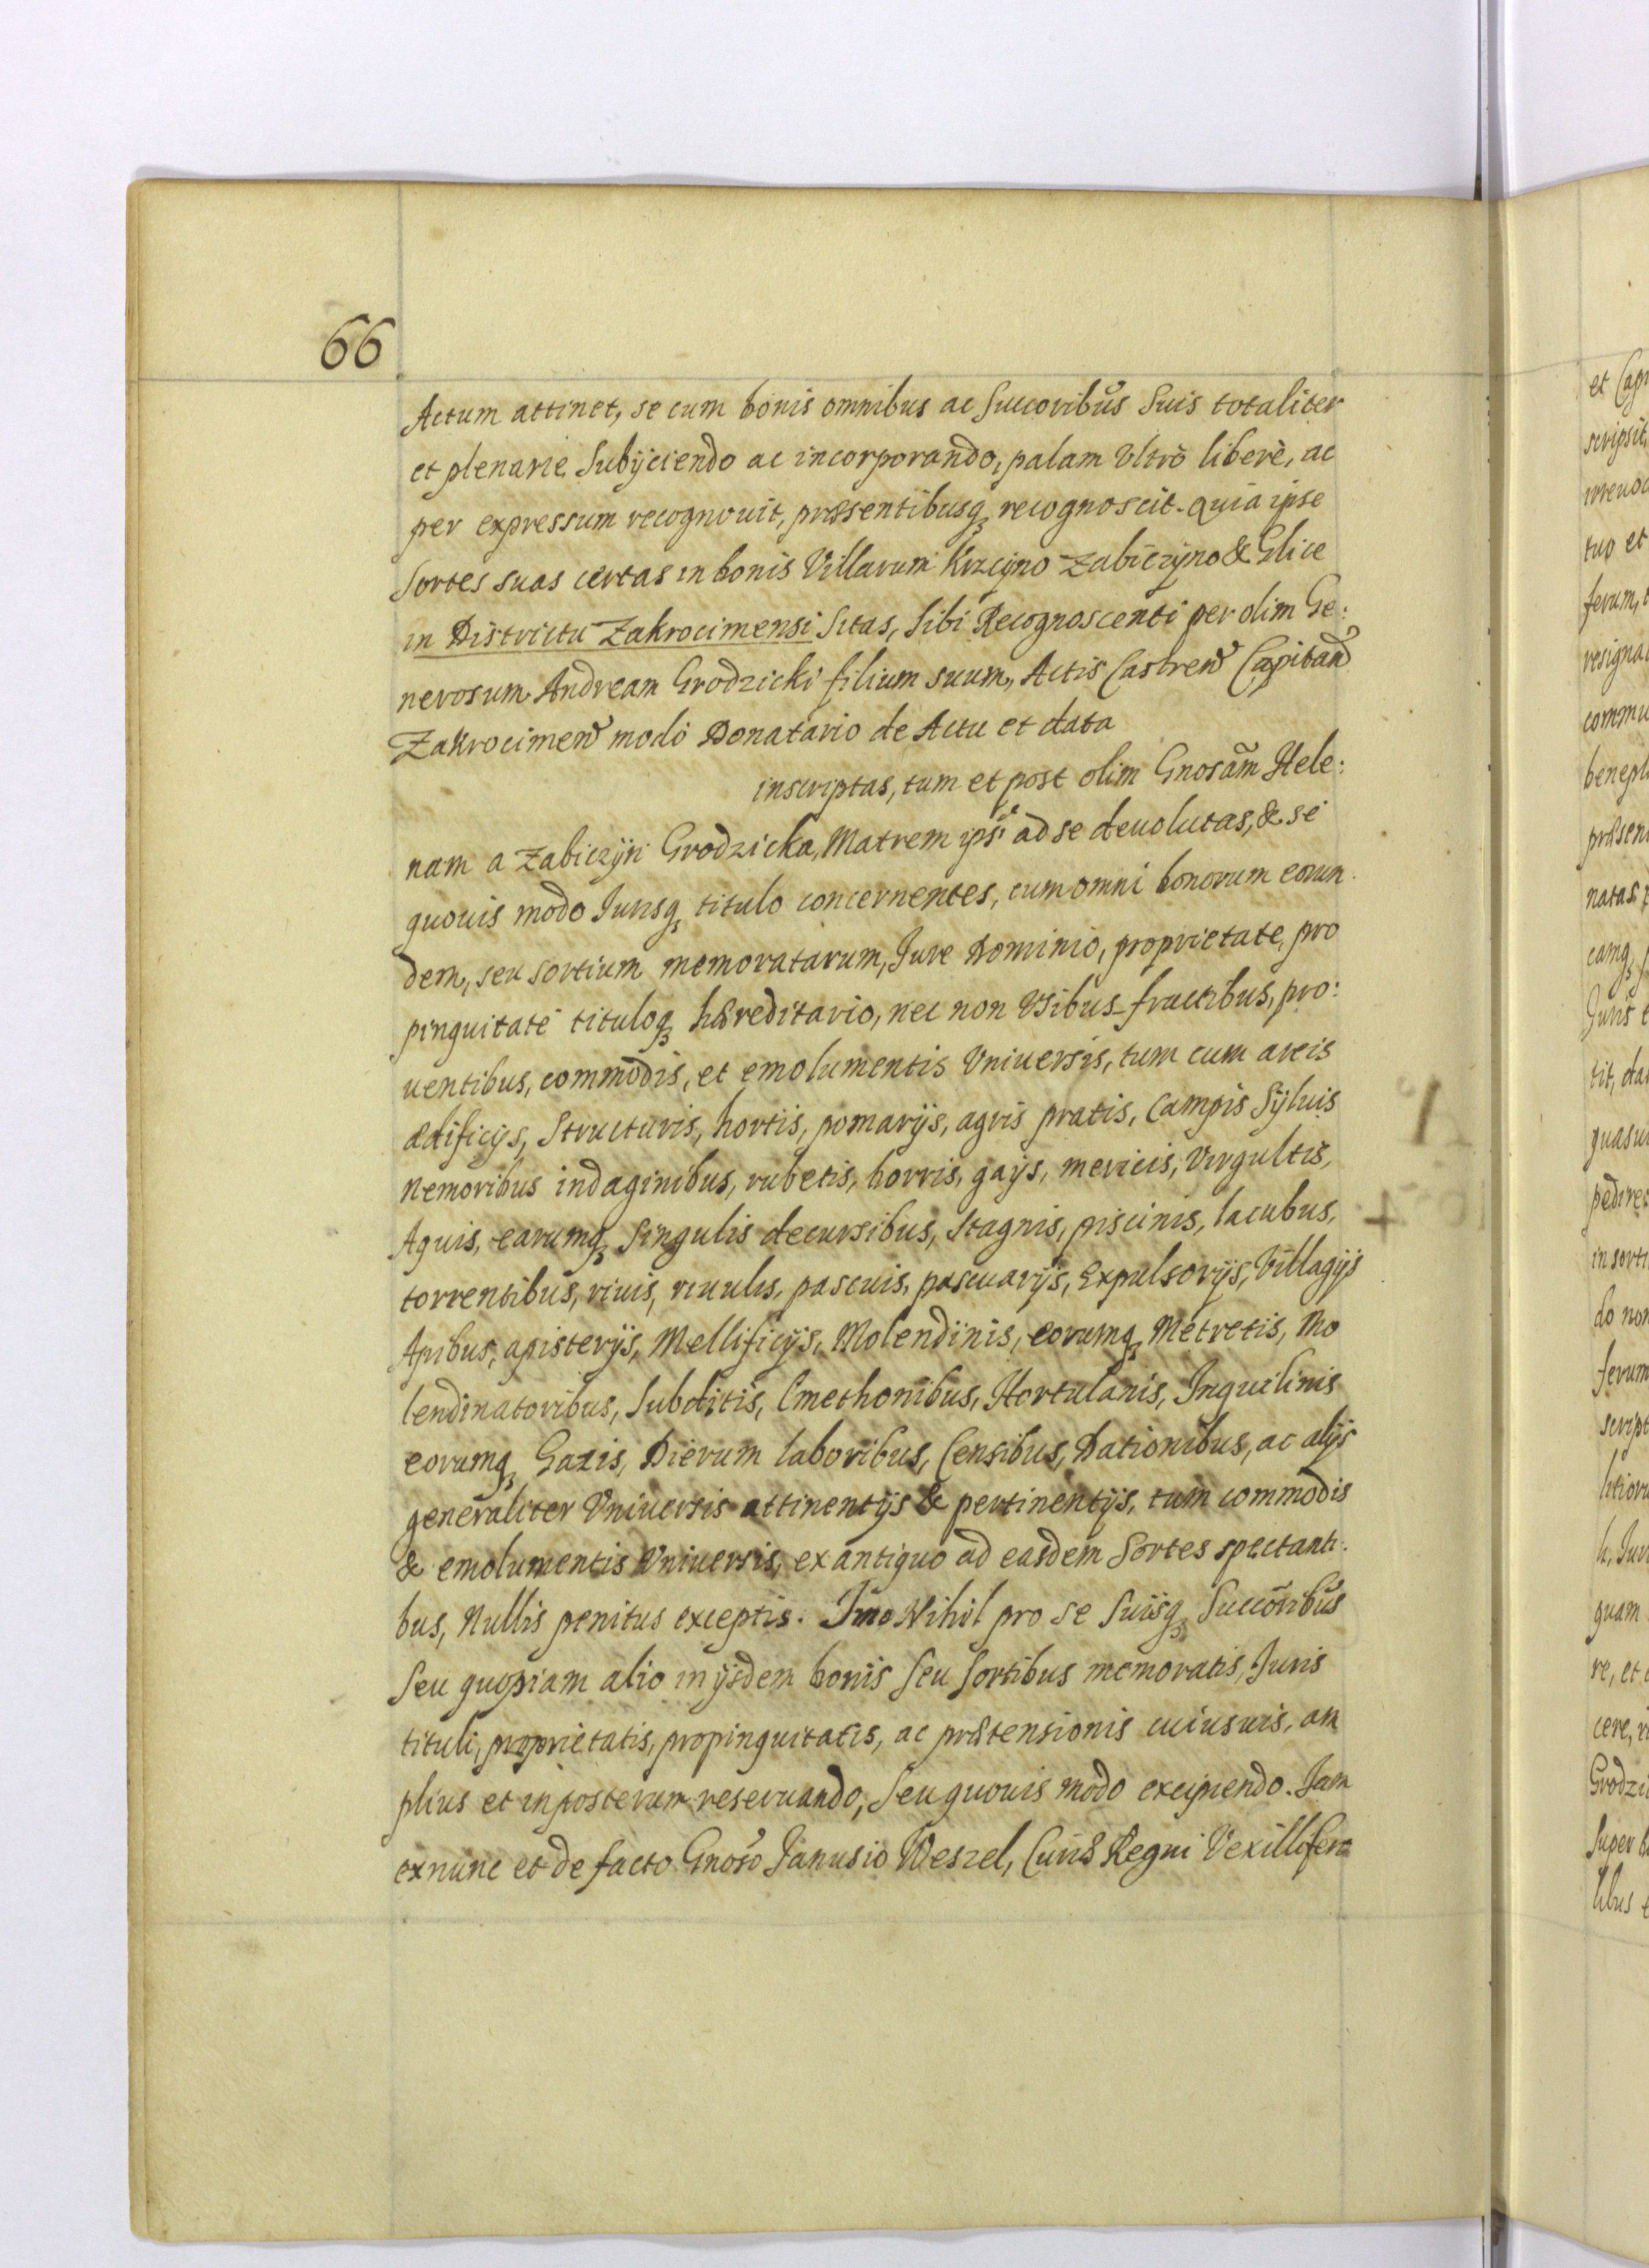 66
Actum attinet, se cum bonis omnibus ac Succoribus Suis totaliter
et plenarie Subijciendo ac incorporando, palam Vltrò liberè, ac
per expressum recognouit, præsentibusq recognoscit. Quia ipse
Sortes suas certas in bonis Villarum Krzcyno Zabiczyno & Glice
in Districtu Zakrocimensi Sitas, Sibi Recognoscenti per olim Ge:
nerosum Andream Grodzicki filium suum, Actis Castren Capitan
Zakrocimen modò Donatario de Actu et data
inscriptas, tum et post olim Gnosam Hele:
nam a Zabiczyn Grodzicka, Matrem ipsi ad se deuolutas, & se
quouis modo Jurisq titulo concernentes, cum omni bonorum eorun
dem, seu sortium memoratarum, Jure Dominio, proprietate, pro
pinquitate tituloq hæreditario, nec non Vsibus fructibus, pro:
uentibus, commodis, et emolumentis Vniuersis, tum cum areis
ædificijs, Structuris, hortis, pomarijs, agris pratis, Campis Syluis
Nemoribus indaginibus, rubetis, borris, gajs, mericis, Virgultis,
Aquis, earumq Singulis decursibus, Stagnis, piscinis, lacubus,
torrentibus, riuis, riuulis, pascuis, pascuarijs, Expulsorijs, Villagijs
Apibus, apisterijs, Mellificijs, Molendinis, eorumq Metretis, Mo
lendinatoribus, Subditis, Cmethonibus, Hortulanis, Inquilinis
eorumq Gazis, Dierum laboribus, Censibus, Dationibus, ac alijs
generaliter Vniuersis attinentijs & pertinentijs, tum commodis
& emolumentis Vniuersis, ex antiquo ad easdem Sortes spectanti:
bus, Nullis penitus exceptis. Imo Nihil pro se Suisq Succoribus
Seu quopiam alio in ijsdem bonis Seu Sortibus memoratis, Juris
tituli, proprietatis, propinquitatis, ac prætensionis cuiusuis, am
plius et inposterum reseruando, Seu quouis modo excipiendo. Jam
exnunc et de facto Gnoso Janusio Weszel, Curiæ Regni Vexillifero